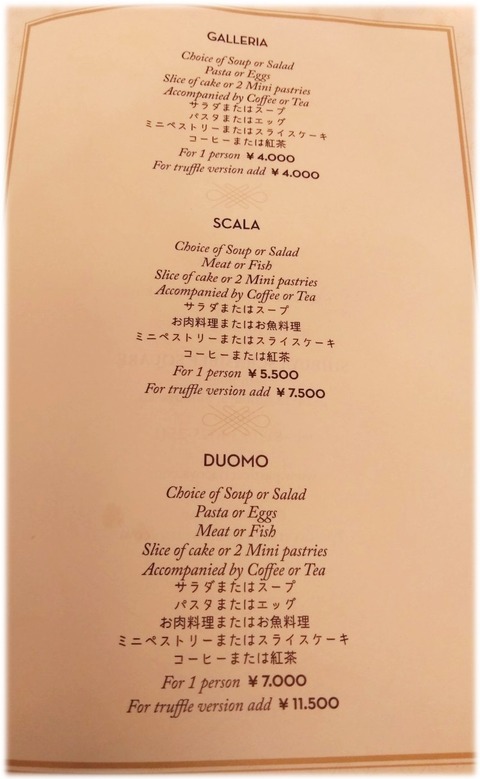 GALLERIA
Choice of Soup or Salad
Pasta or Eggs
Slice of cake or 2 Mini pastries
Accompanied by Coffee or Tea
サラダまたはスープ
パスタまたはエッグ
ミニペストリーまたはスライスケーキ
コーヒーまたは紅茶
For 1 person ¥4.000
For truffle version add ¥4.000
SCALA
Choice of Soup or Salad
Meat or Fish
Slice of cake or 2 Mini pastries
Accompanied by Coffee or Tea
サラダまたはスープ
お肉料理またはお魚料理
ミニペストリーまたはスライスケーキ
コーヒーまたは紅茶
For 1 person ¥5.500
For truffle version add ¥7.500
DUOMO
Choice of Soup or Salad
Pasta or Eggs
Meat or Fish
Slice of cake or 2 Mini pastries
Accompanied by Coffee or Tea
サラダまたはスープ
パスタまたはエッグ
お肉料理またはお魚料理
ミニペストリーまたはスライスケーキ
コーヒーまたは紅茶
For 1 person ¥7.000
For truffle version add ¥11.500